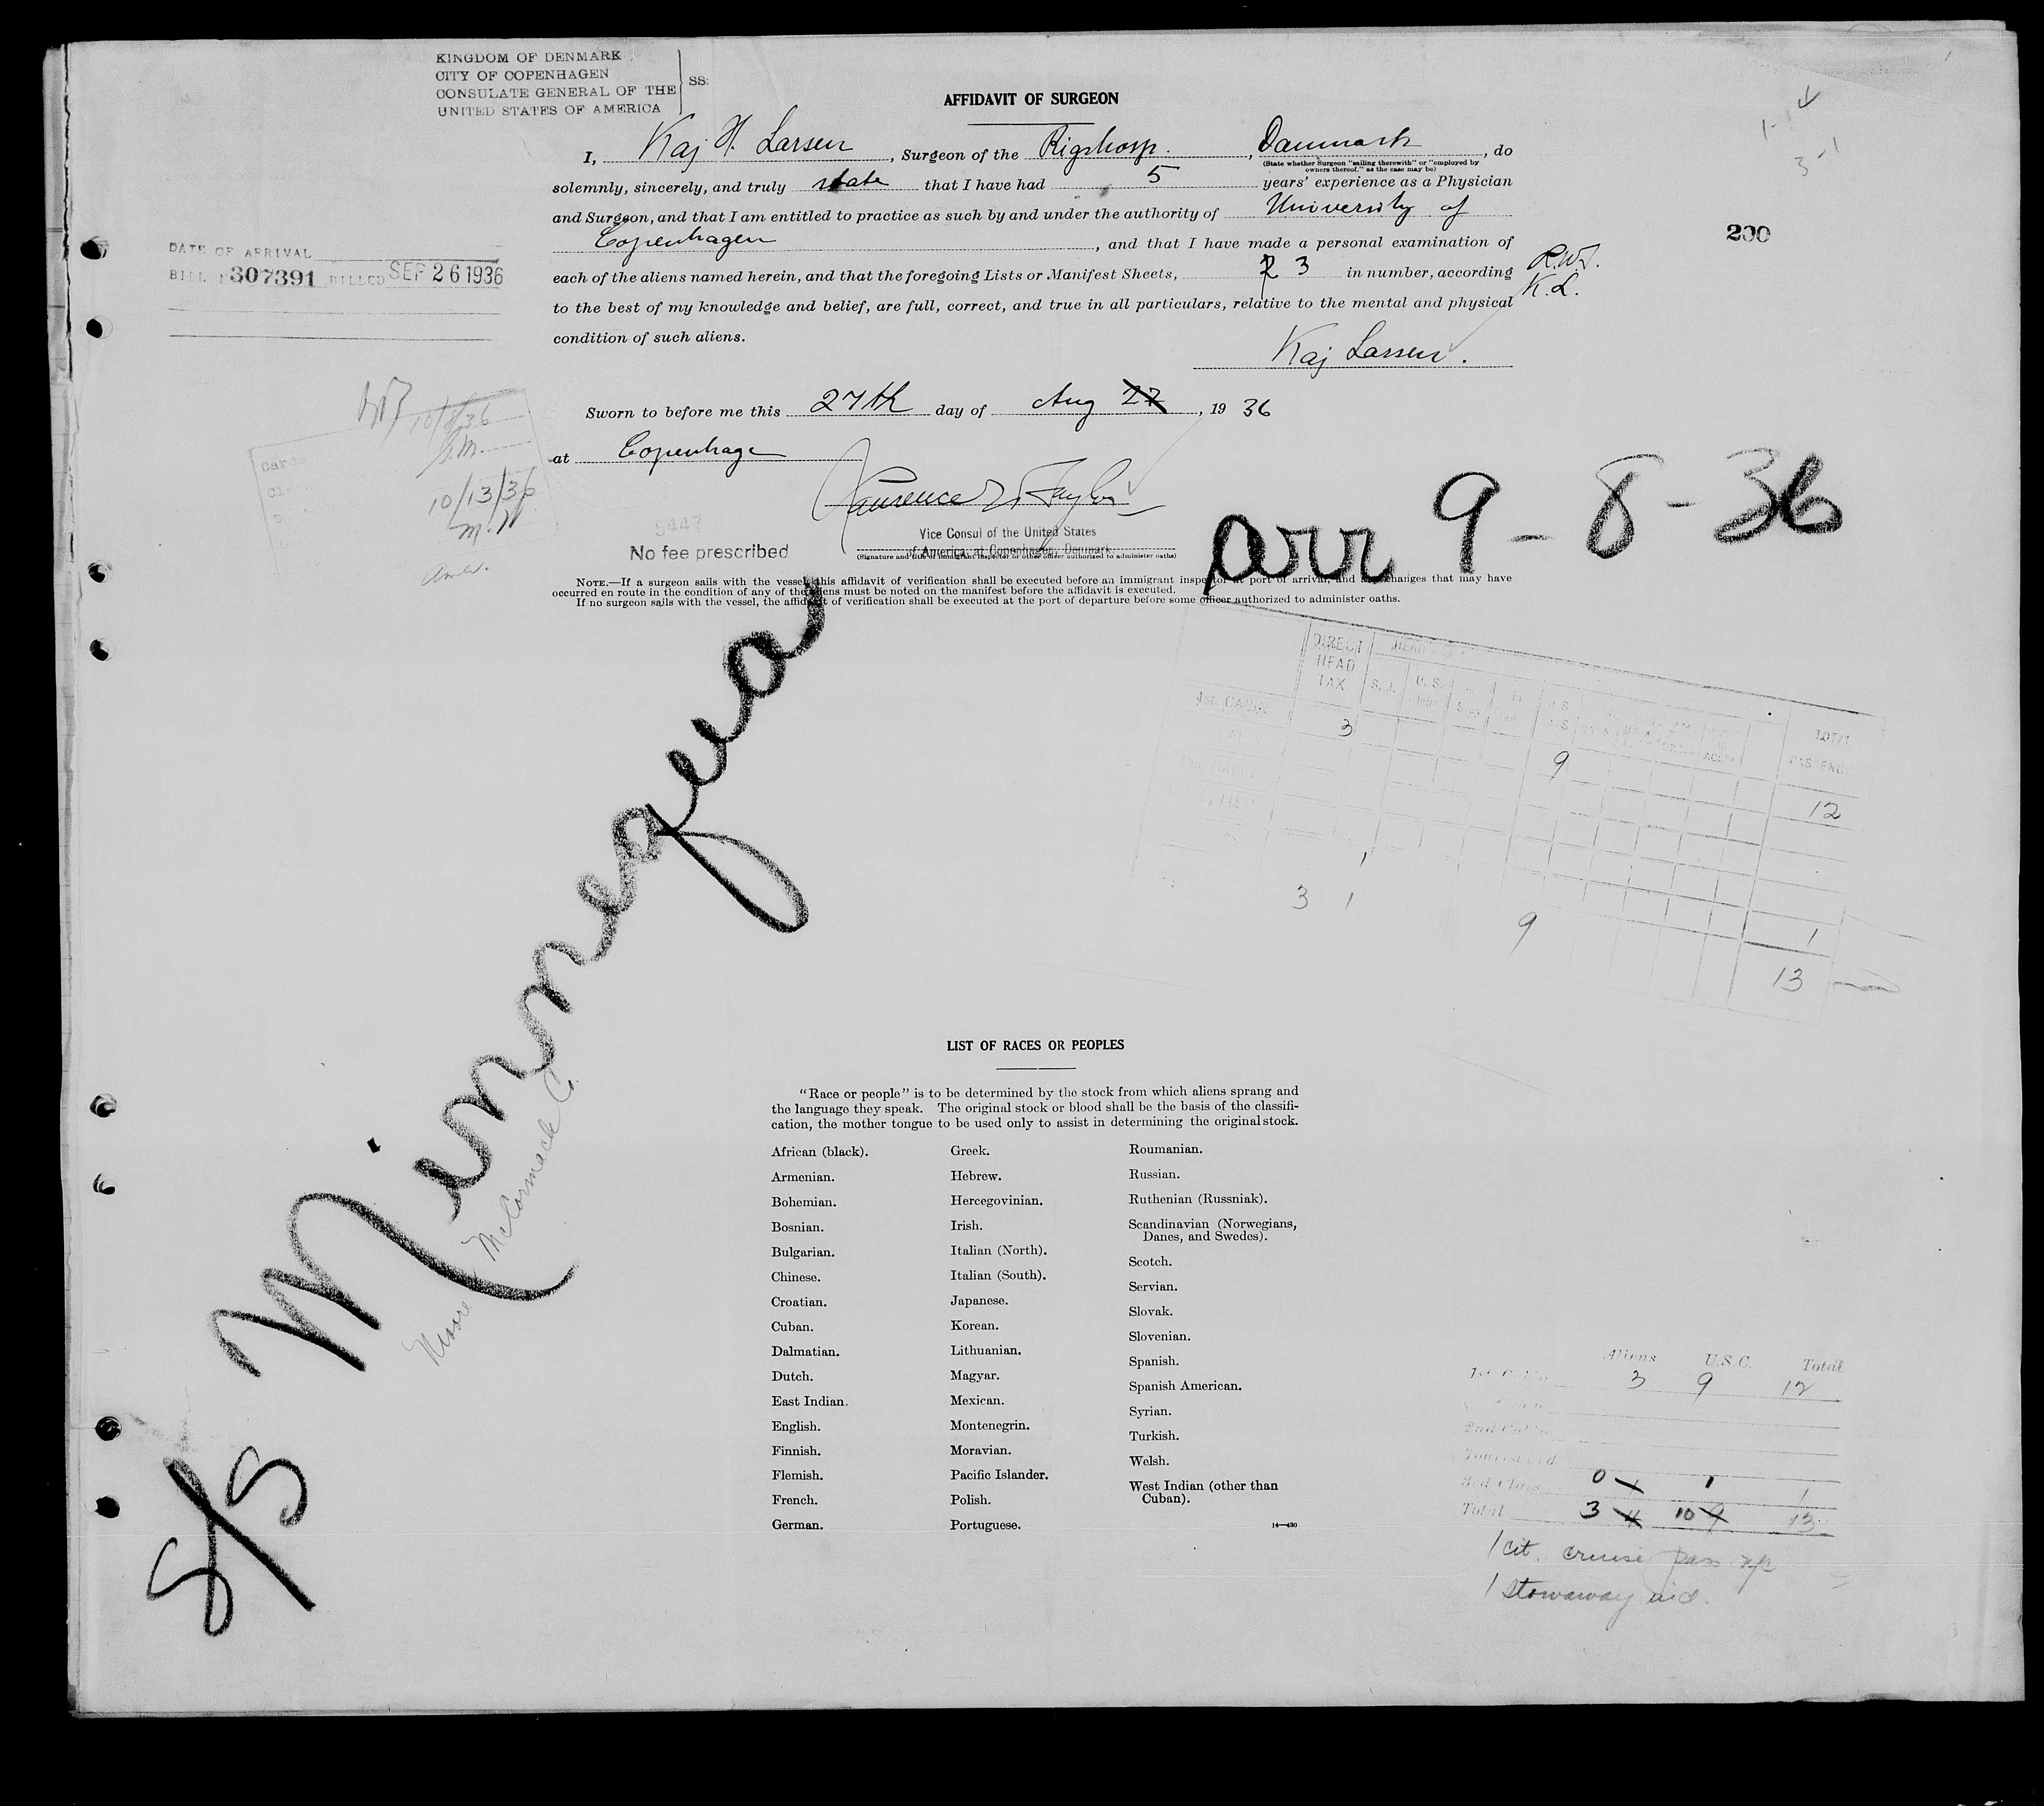 KINGDOM OF DENMARK
CITY OF COPENHAGEN
CONSULATE GENERAL OF THE
UNITED STATES OF AMERICA
SS:
AFFIDAVIT OF SURGEON
I, Kaj H. Larsen, Surgeon of the Rigshosp., Danmark, do
(State whether Surgeon "sailing therewith" or "employed by
owners thereof," as the case may be)
solemnly, sincerely, and truly state that I have had 5 years' experience as a Physician
and Surgeon, and that I am entitled to practice as such by and under the authority of University of
Copenhagen, and that I have made a personal examination of
each of the aliens named herein, and that the foregoing Lists or Manifest Sheets, 3 in number, according
to the best of my knowledge and belief, are full, correct, and true in all particulars, relative to the mental and physical
condition of such aliens.
K.L.
200
Kaj Larsen.
DATE OF ARRIVAL
BILL 307391 BILLED SEP 26 1936
Sworn to before me this 27th day of Aug 27, 19 36
at Copenhagen
10/8/36
10/13/36
Vice Consul of the United States
of America, at Copenhagen, Denmark
(Signature and title of immigrant inspector or other officer authorized to administer oaths)
5447
No fee prescribed
arr 9-8-36
NOTE.—If a surgeon sails with the vessel, this affidavit of verification shall be executed before an immigrant inspector at port of arrival, and any changes that may have
occurred en route in the condition of any of the aliens must be noted on the manifest before the affidavit is executed.
If no surgeon sails with the vessel, the affidavit of verification shall be executed at the port of departure before some officer authorized to administer oaths.
DIRECT
HEAD
TAX
1st CABIN 3 9 12
1
3 1 9 13
S/S Minnequa
Moore McCormack Co.
LIST OF RACES OR PEOPLES
"Race or people" is to be determined by the stock from which aliens sprang and
the language they speak. The original stock or blood shall be the basis of the classifi-
cation, the mother tongue to be used only to assist in determining the original stock.
African (black).
Armenian.
Bohemian.
Bosnian.
Bulgarian.
Chinese.
Croatian.
Cuban.
Dalmatian.
Dutch.
East Indian.
English.
Finnish.
Flemish.
French.
German.
Greek.
Hebrew.
Hercegovinian.
Irish.
Italian (North).
Italian (South).
Japanese.
Korean.
Lithuanian.
Magyar.
Mexican.
Montenegrin.
Moravian.
Pacific Islander.
Polish.
Portuguese.
Roumanian.
Russian.
Ruthenian (Russniak).
Scandinavian (Norwegians,
Danes, and Swedes).
Scotch.
Servian.
Slovak.
Slovenian.
Spanish.
Spanish American.
Syrian.
Turkish.
Welsh.
West Indian (other than
Cuban).
14—430
Aliens U.S.C. Total
3 9 12
3rd Class 0 1 1
Total 3 4 10 9 13
1 cit. cruise pass
1 stowaway